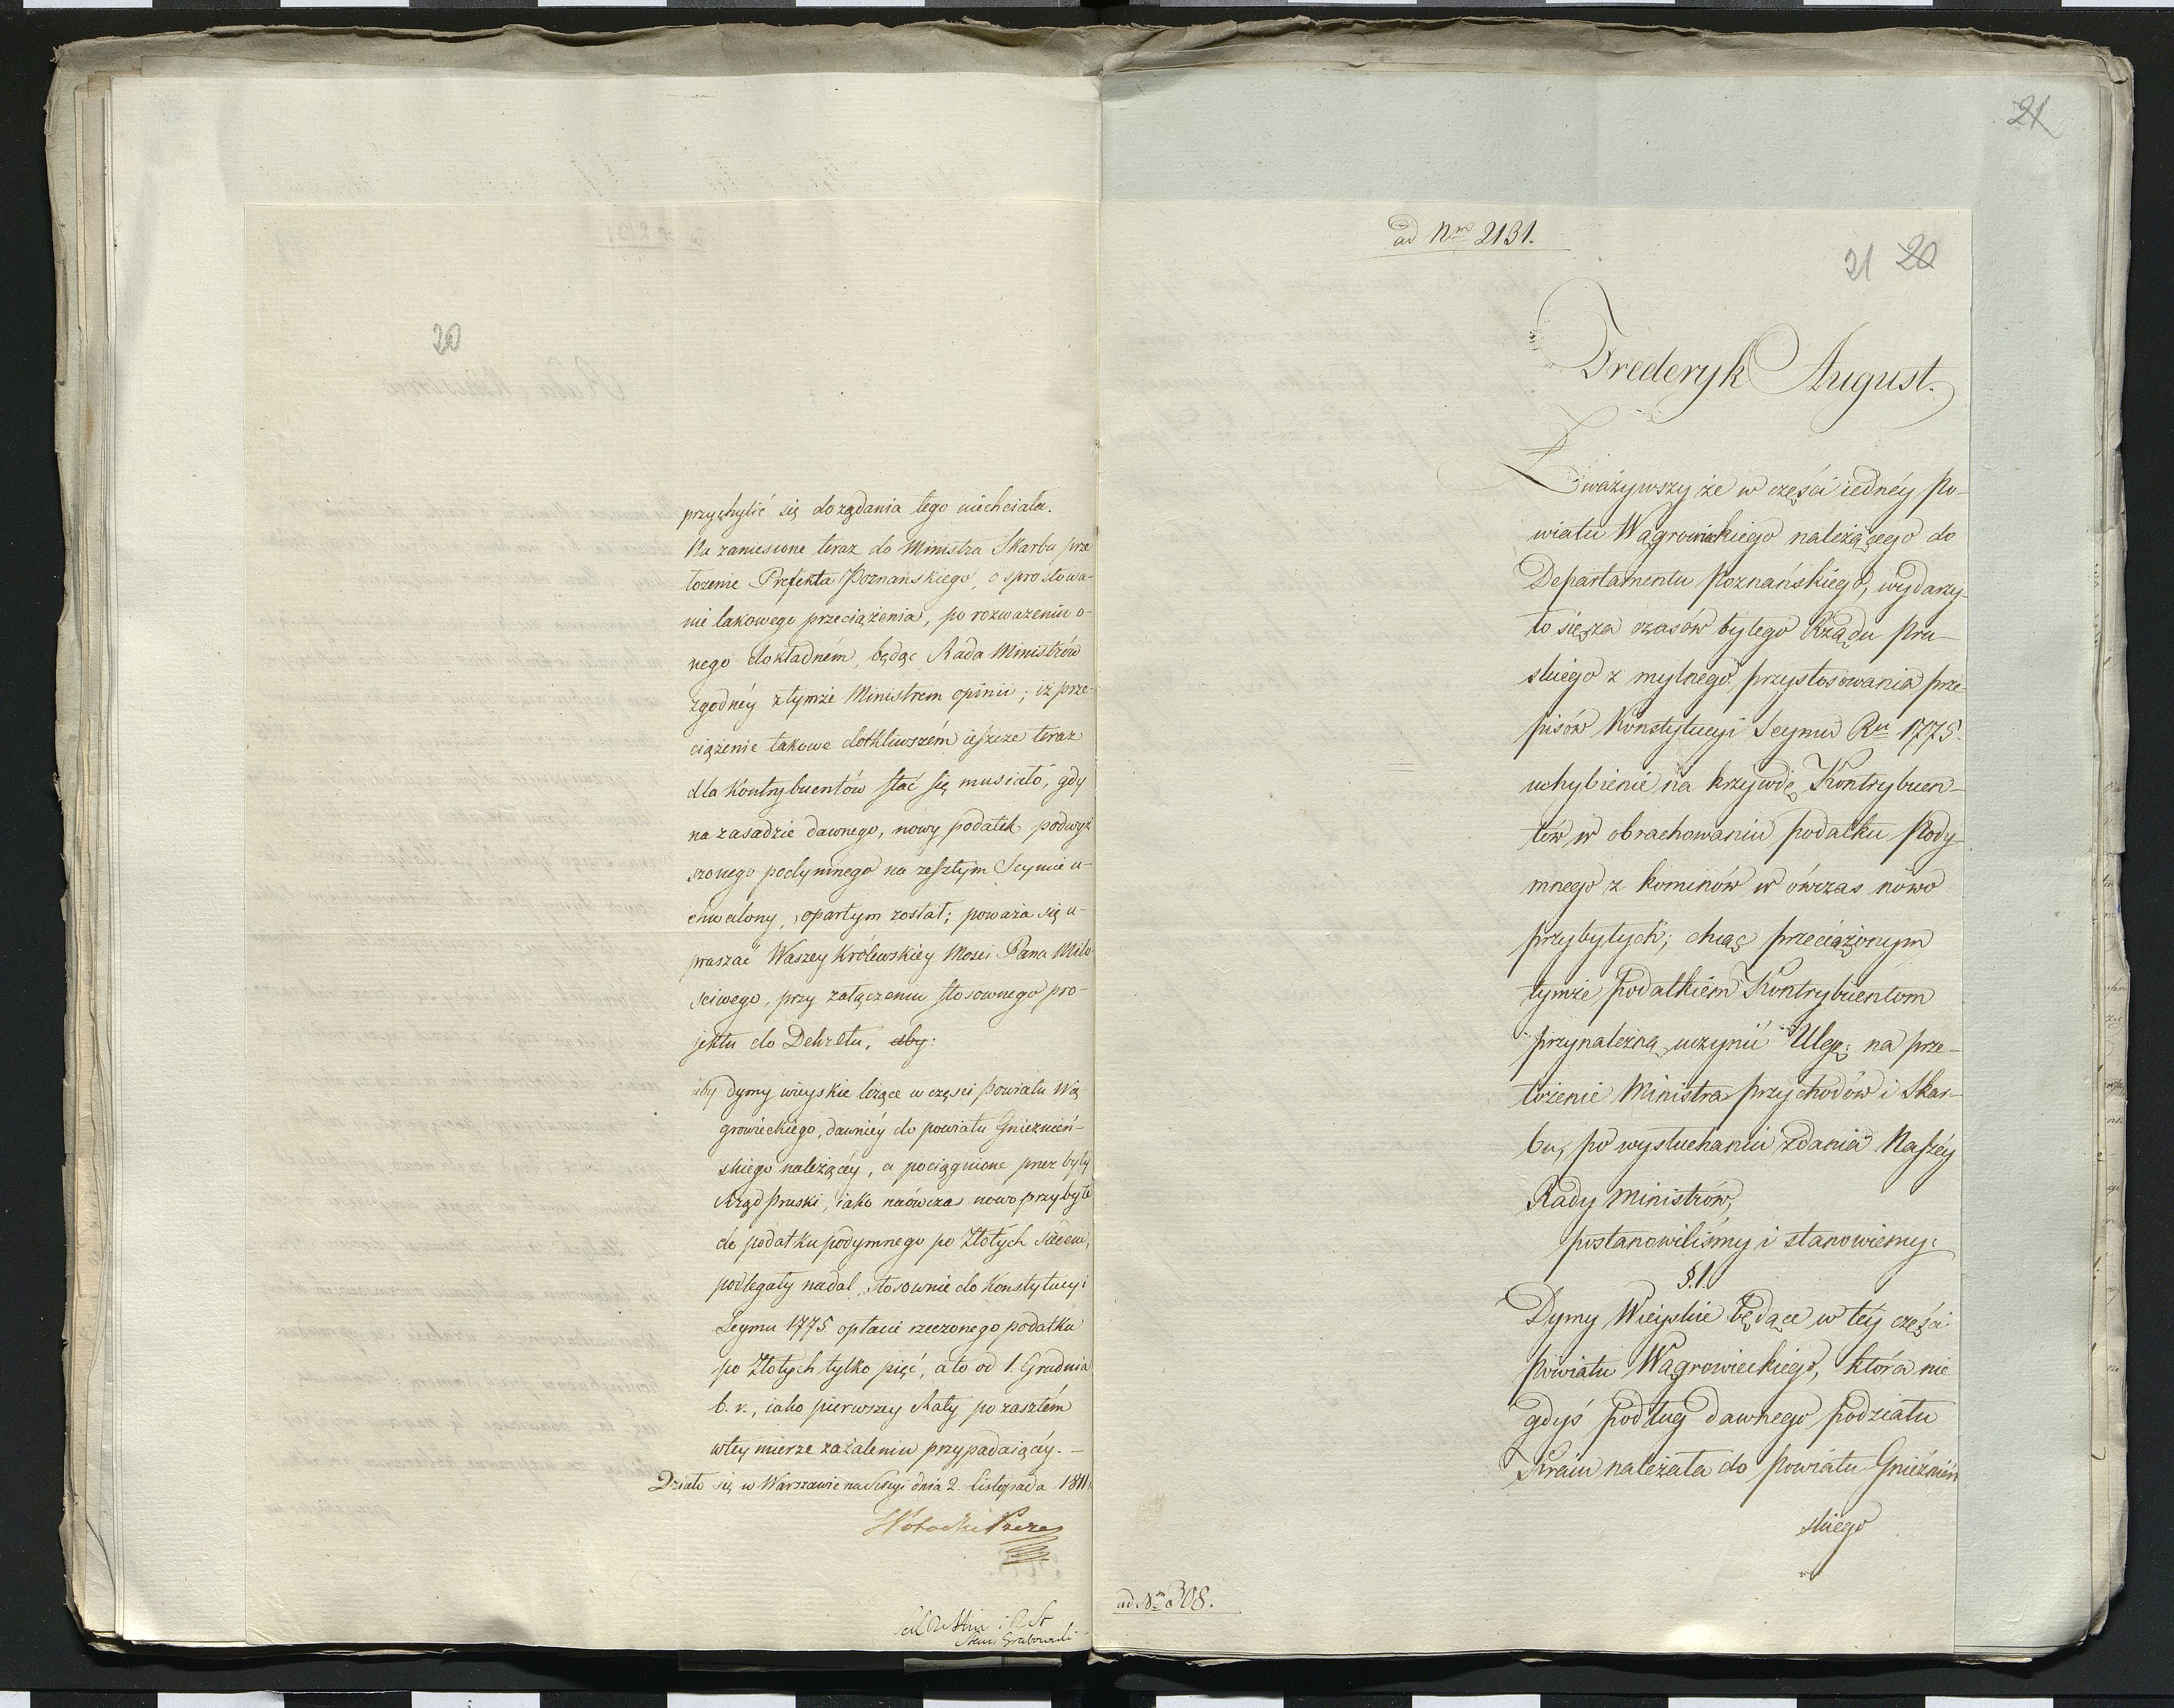 20
przychylić się do żądania tego niechciała.
Na zaniesione teraz do Ministra Skarbu prze
łożenie Prefekta Poznańskiego, o sprostowa-
nie takowego przeciążenia, po rozważeniu o-
nego dokładném, będąc Rada Ministrów
zgodnéy z tymże Ministrem opinii; iż prze-
ciążenie takowe dotkliwszém ieszcze teraz
dla Kontrybuentów stać się musiało, gdy
na zasadzie dawnego, nowy podatek podwyż
szonego podymnego na zeszłym Seymie u-
chwalony, opartym został; poważa się u-
praszać Waszey Królewskiey Mości Pana Miło
ściwego, przy załączeniu stosownego pro-
jektu do Dekretu, aby:
aby dymy wieyskie leżące w części Powiatu Wą
growieckiego, dawniéy do powiatu Gnieźnień-
skiego należącéy, a pociągnione przez były
Rząd Pruski, iako naówczas nowo przybyłe
do podatku podymnego po Złotych siedem,
podlegały nadal, stosownie do Konstytucyi
Seymu 1775 opłacie rzeczonego podatku
po Złotych tylko pięć, a to od 1. Grudnia
b. r., iako pierwszey Raty po zaszłém
w tey mierze zażaleniu przypadaiącéy. -
Działo się w Warszawie na Sessyi dnia 2. Listopada 1811
Potocki Prezes
Stan: Grabowski
21
ad Nrm 2131.
21 20
Frederyk August.
Zważywszy że w części iednéy Po-
wiatu Wągrowieckiego należącego do
Departamentu Poznańskiego, wydarzy-
ło się za czasów byłego Rządu Pru-
skiego z mylnego przystosowania prze-
pisów Konstytucyi Seymu Ru 1775.
uchybienie na krzywdę Kontrybuen-
tów w obrachowaniu podatku Pody-
mnego z kominów w ówczas nowo
przybyłych; chcąc przeciążonym
tymże podatkiem Kontrybuentom
przynależną uczynić Ulgę; na prze-
łożenie Ministra Przychodów i Skar-
bu, po wysłuchaniu zdania Naszéy
Rady Ministrów,
postanowiliśmy i stanowiemy:
§. 1.
Dymy Wieyskie będące w tey części
Powiatu Wągrowieckiego, która nie
gdyś podług dawnego podziału
Kraiu należała do Powiatu Gnieźnień
skiego
ad Nrm 308.